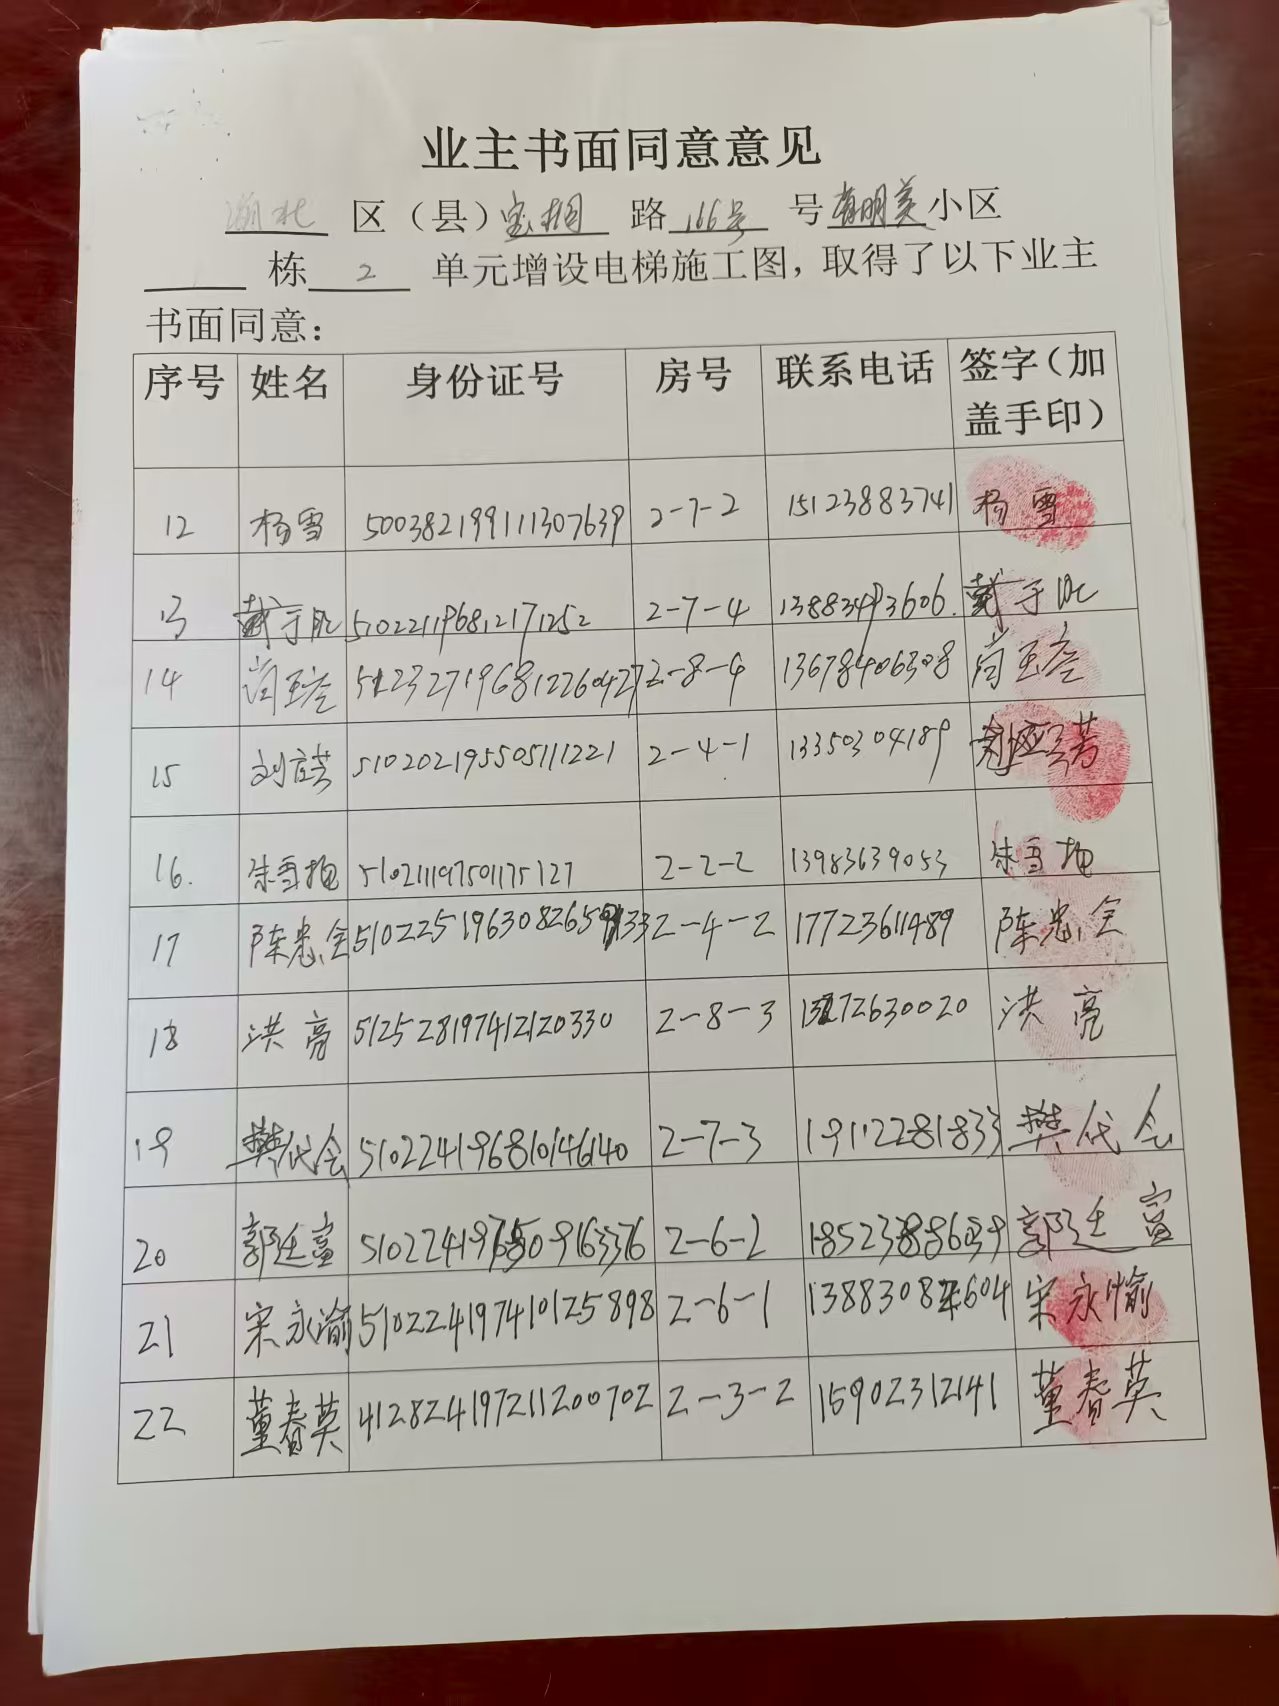 业主书面同意意见
渝北 区（县）宝桐 路 166号 号 小区
栋 2 单元增设电梯施工图，取得了以下业主
书面同意：
序号 姓名 身份证号 房号 联系电话 签字（加盖手印）
12 杨雪 500382199111307639 2-7-2 15123883741 杨雪
13 510221196812171252 2-7-4 13883493606
14 512327196812260427 2-8-4 13678406308
15 510202195505111221 2-4-1 13350304189
16. 510211197501175127 2-2-2 13983639053
17 陈忠全 2-4-2 17723611489 陈忠全
18 洪亮 512528197412120330 2-8-3 洪亮
19 樊代会 510224196810146140 2-7-3 19112281833 樊代会
20 郭廷富 2-6-2 郭廷富
21 宋永渝 510224197410125898 2-6-1 宋永愉
22 董春英 412824197211200702 2-3-2 15902312141 董春英